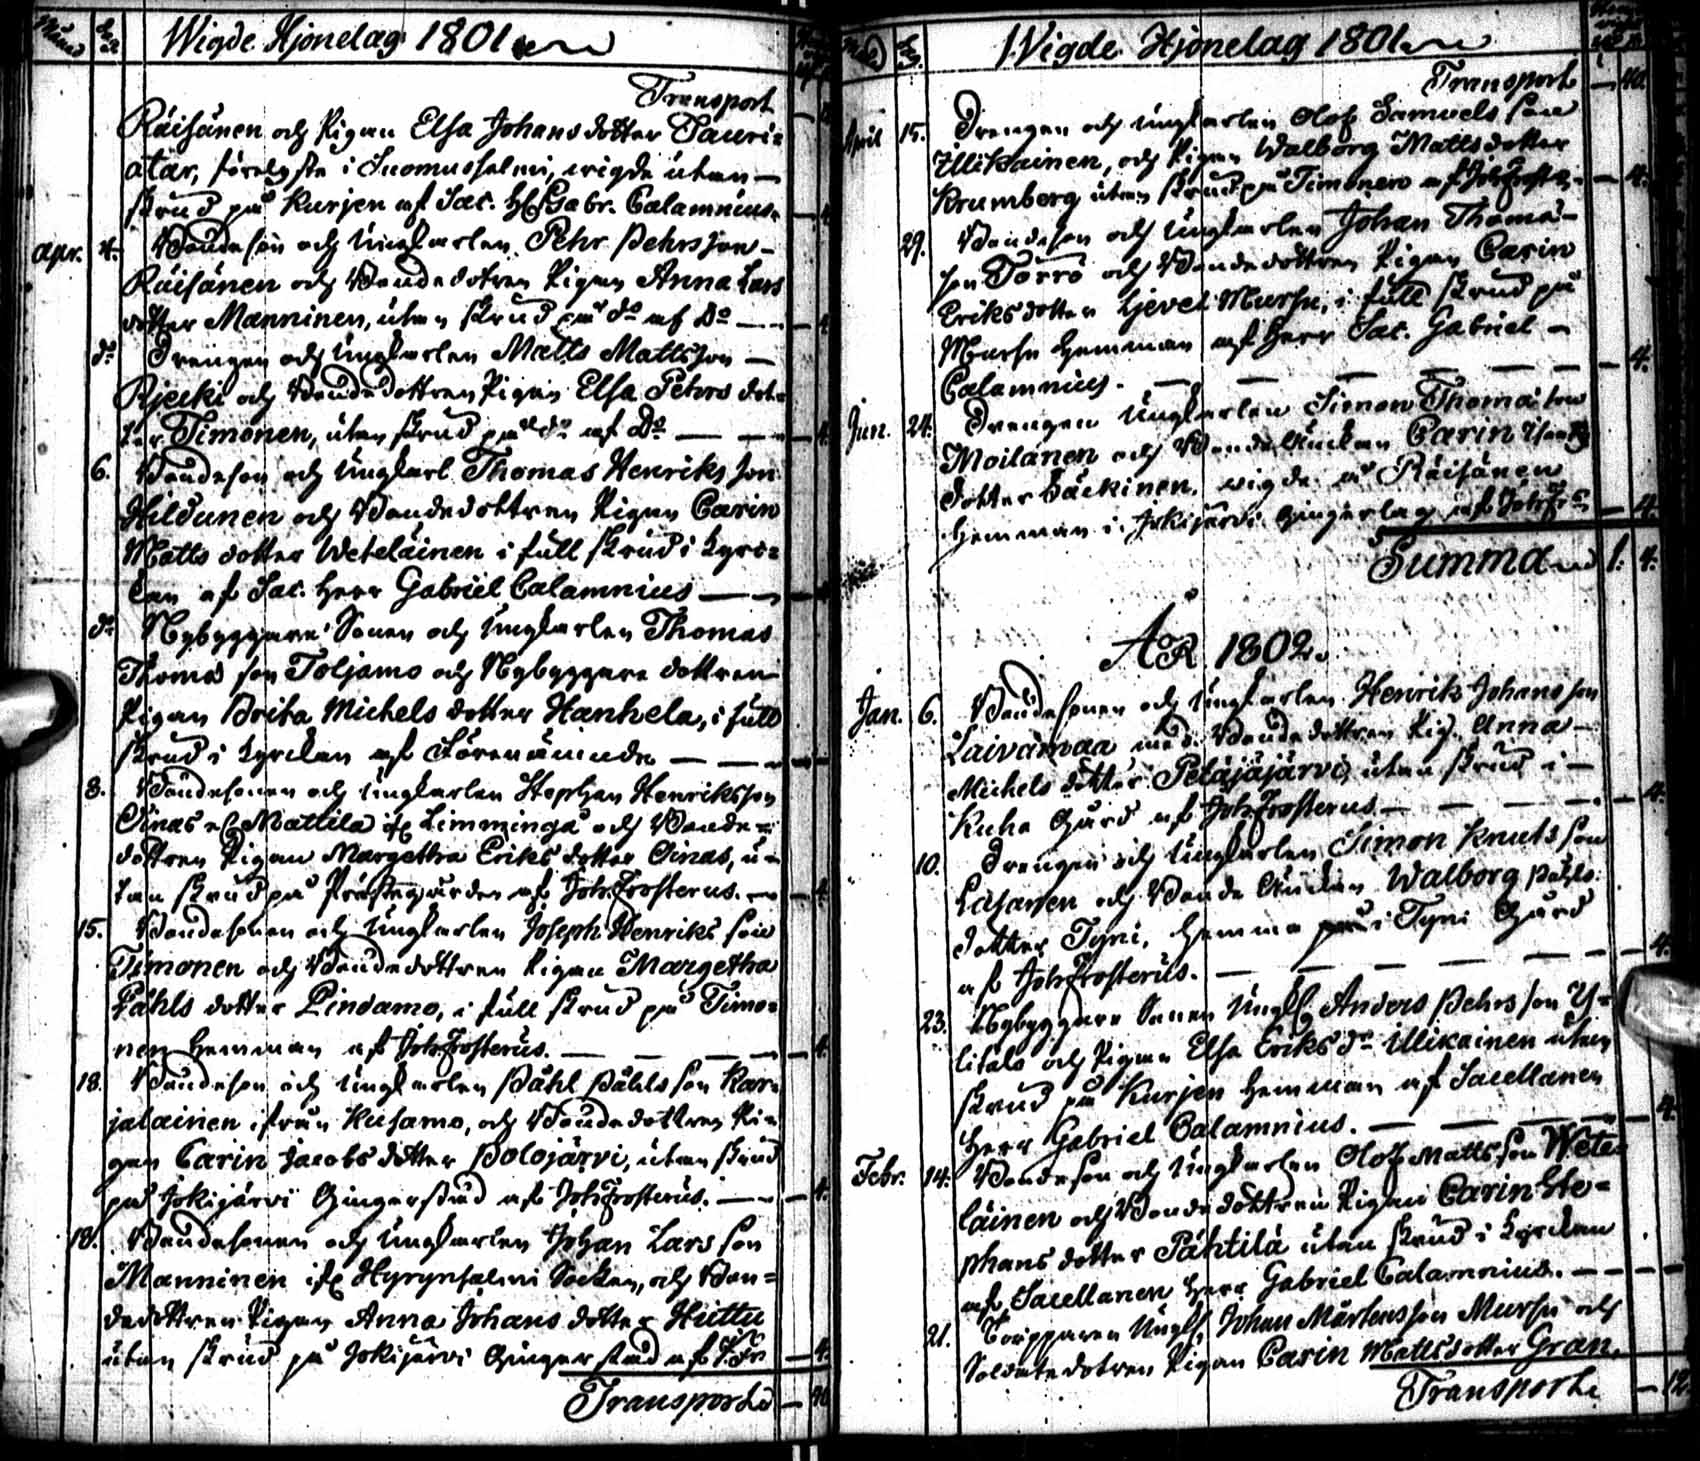 Wigde Hjonelag 1801
Transport
Räisänen och Pigan Elsa Johans dotter Tauri=
atar, förelyste i Suomussalmi, wigde utan
skrud på Kurjen af Sac. H. Gabr. Calamnius. 4
Apr. 4. Bondeson och Ungkarlen Pehr Pehrsson
Räisänen och Bondedotren Pigan Anna Lars
dotter Manninen, utan skrud på do af Do 4
do Drengen och Ungkarlen Matts Mattsson
Rjecki och Bondedottren Pigan Elsa Pehrs dot=
ter Timonen, utan skrud på do af Do 4
6. Bondeson och Ungkarl Thomas Henriksson
Hildunen och Bondedottren Pigan Carin
Matts dotter Weteläinen i full skrud i kyrc=
kan af Sac. Herr Gabriel Calamnius 4
do Nybyggare Sonen och Ungkarlen Thomas
Thomas son Toljamo och Nybyggare dottren
Pigan Brita Michels dotter Hanhela, i full
skrud i kyrckan af Förenämnde
8. Bondesonen och Ungkarlen Stephan Henriksson
Oinas Mattila Limminga och Bonde=
dottren Pigan Margetha Eriks dotter Oinas, u=
tan skrud på Prästegården af Joh. Frosterus. 4
15. Bondesonen och Ungkarlen Joseph Henriks son
Timonen och Bondedottren Pigan Margetha
Påhls dotter Pindamo, i full skrud på Timo=
nen hemman af Joh. Frosterus. 4
18. Bondeson och Ungkarlen Påhl Påhls son Kar=
jalainen ifrån Kusamo, och Bondedottren Pi=
gan Carin Jacobs dotter Polojärvi, utan skrud
på Jokijärvi Gingerstad af Joh. Frosterus. 4.
18. Bondesonen och Ungkarlen Johan Lars son
Manninen Hyrynsalmi Socken, och Bon=
dedottren Pigan Anna Johans dotter Huttu
utan skrud på Jokijärvi Gingerstad af J. Fr. 4.
Transport 40
Wigde Hjonelag 1801
Transport 40
April 15. Drengen och Ungkarlen Olof Samuels son
Illikainen, och Pigan Walborg Mattsdotter
Krumberg utan skrud på Timonen af Joh. Froste. 4.
29. Bondeson och Ungkarlen Johan Thoma-
son Törrö och Bondedottren Pigan Carin
Eriks dotter Ljevet Mursu, i full skrud på
Mursu hemman af Herr Sac. Gabriel
Calamnius. 4.
Jun. 24. Drengen Ungkarlen Simon Thoma son
Moilanen och Bonde Änckan Carin
dotter Säckinen, wigde å Räisänen
hemman i Jokijärvi Gingerlag af Joh. Fr. 4
Summa 1: 4.
ÅR 1802.
Jan. 6. Bondesonen och Ungkarlen Henrik Johansson
Laivamaa med Bondedottren Pig. Anna
Michels dotter Petäjäjärvi, utan skrud i
Kuha Gård af Joh. Frosterus. 4.
10. Drengen och Ungkarlen Simon Knuts son
Lasanen och Bonde Änckan Walborg Påhls
dotter Tyni, hemma i Tyni Gård
af Joh. Frosterus. 4.
23. Nybyggare Sonen Ungk. Anders Pehrs son Y=
litalo och Pigan Elsa Eriks dr Illikainen utan
skrud på Kurjen hemman af Sacellanen
Herr Gabriel Calamnius. 4.
Febr. 14. Bondeson och Ungkarlen Olof Mattsson Wete=
läinen och Bondedottren Pigan Carin Ste=
phans dotter Pähtilä utan skrud i kyrckan
af Sacellanen Herr Gabriel Calamnius.
21. Torpparen Ungk. Johan Mårtensson Mursu och
Soldatedotren Pigan Carin Mattsdotter Gran.
Transport 12